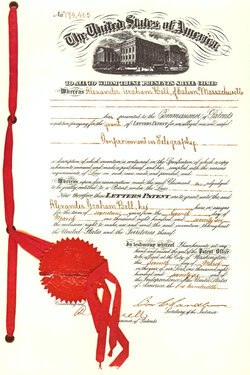 No. 174,465
The United States of America
TO ALL TO WHOM THESE PRESENTS SHALL COME:
Whereas Alexander Graham Bell, of Salem, Massachusetts
has presented to the Commissioner of Patents
a petition praying for the grant of LETTERS PATENT for
Improvement in Telegraphy
a description of which invention is contained in the Specification of which a copy
is hereunto annexed and made a part hereof, and has complied with the various
requirements of Law in such cases made and provided, and
Whereas upon due examination made the said Claimant is adjudged
to be justly entitled to a Patent under the Law.
Now therefore these LETTERS PATENT are to grant unto the said
Alexander Graham Bell, his heirs or assigns
for the term of seventeen years from the seventh day of
March one thousand eight hundred and seventy-six
the exclusive right to make, use and vend the said invention throughout
the United States and the Territories thereof.
In testimony whereof
Patent Office
at the City of Washington
seventh day of March
in the year of our Lord one thousand eight
hundred and seventy-six
and of the Independence of the United States of
America the one hundredth
Secretary of the Interior
Commissioner of Patents